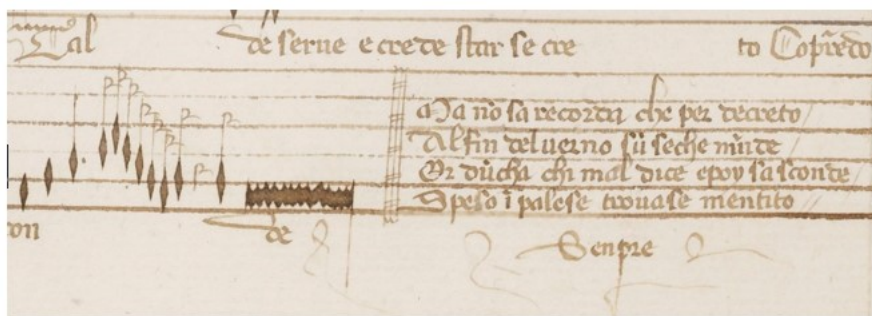 Tal de serue e crede star se cre to Copredo
Ma no sa recorda che per decreto
Al fin del uerno su seche fronde
Or ducha chi mal dice e poy sasconde
Speso i palese trouase mentito
con de
Senpre